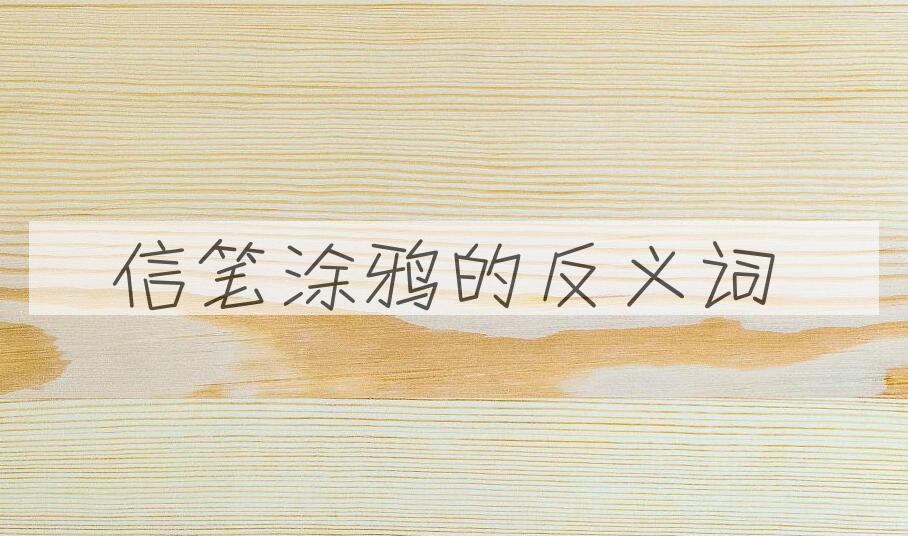 信笔涂鸦的反义词